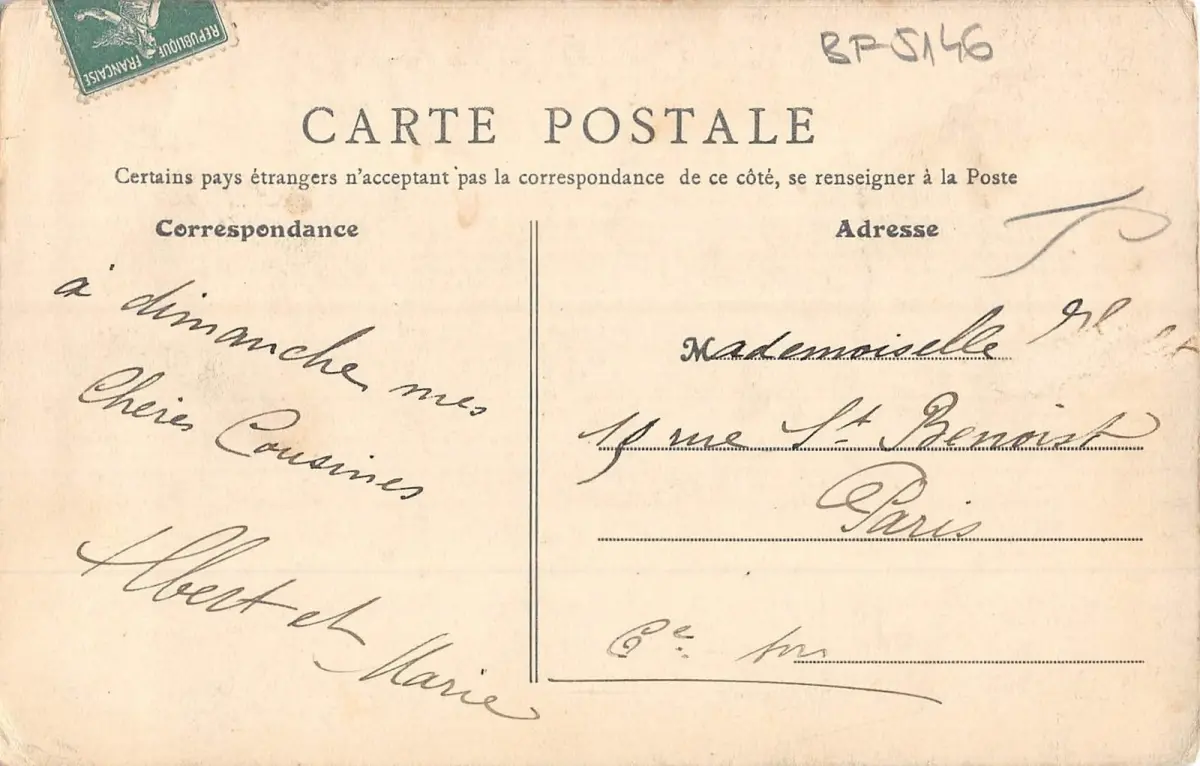 REPUBLIQUE FRANÇAISE
BF-5146
CARTE POSTALE
Certains pays étrangers n'acceptant pas la correspondance de ce côté, se renseigner à la Poste
Correspondance
à dimanche mes
Chères Cousines
Albert et Marie
Adresse
T.
Mademoiselle
rue St Benoist
Paris
6e